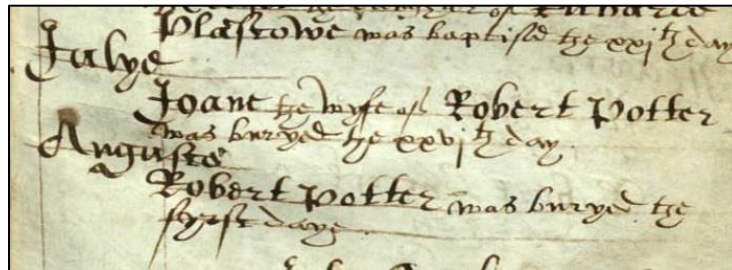 the of Richarde
Plastowe was baptised the xxith day
Julye
Joane the wyfe of Robert Potter
was buryed the xxvith day.
Auguste
Robert Potter was buryed the
fyrst daye